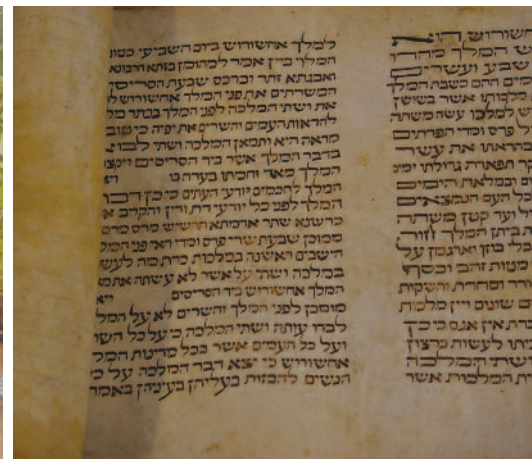 חשורוש הוא
ש המלך מהדו
שבע ועשרים
ההם כשבת המלך
מלכותו אשר בשושן
למלכו עשה משתה
פרס ומדי הפרתמים
בהראתו את עשר
תפארת גדולתו ימים
ובמלאת הימים
כל העם הנמצאים
ועד קטן משתה
ביתן המלך חור
בוץ וארגמן על
מטות זהב וכסף
ודר וסחרת והשקות
שונים ויין מלכות
דת אין אנס כי כן
ביתו לעשות כרצון
ושתי המלכה
המלכות אשר
למלך אחשורוש ביום השביעי כטוב
המלך ביין אמר למהומן בזתא חרבונא
ואבגתא זתר וכרכס שבעת הסריסים
המשרתים את פני המלך אחשורוש
את ושתי המלכה לפני המלך בכתר
להראות העמים והשרים את יפיה כי טובת
מראה היא ותמאן המלכה ושתי לבוא
בדבר המלך אשר ביד הסריסים ויקצף
המלך מאד וחמתו בערה בו
המלך לחכמים ידעי העתים כי כן דבר
המלך לפני כל ידעי דת ודין והקרב
כרשנא שתר אדמתא תרשיש מרס מרסנא
ממוכן שבעת שרי פרס ומדי ראי פני המלך
הישבים ראשנה במלכות כדת מה לעשות
במלכה ושתי על אשר לא עשתה את
המלך אחשורוש ביד הסריסים
מומכן לפני המלך והשרים לא על המלך
לבדו עותה ושתי המלכה כי על כל השרים
ועל כל העמים אשר בכל מדינות המלך
אחשורוש כי יצא דבר המלכה על כל
הנשים להבזות בעליהן בעיניהן באמרם